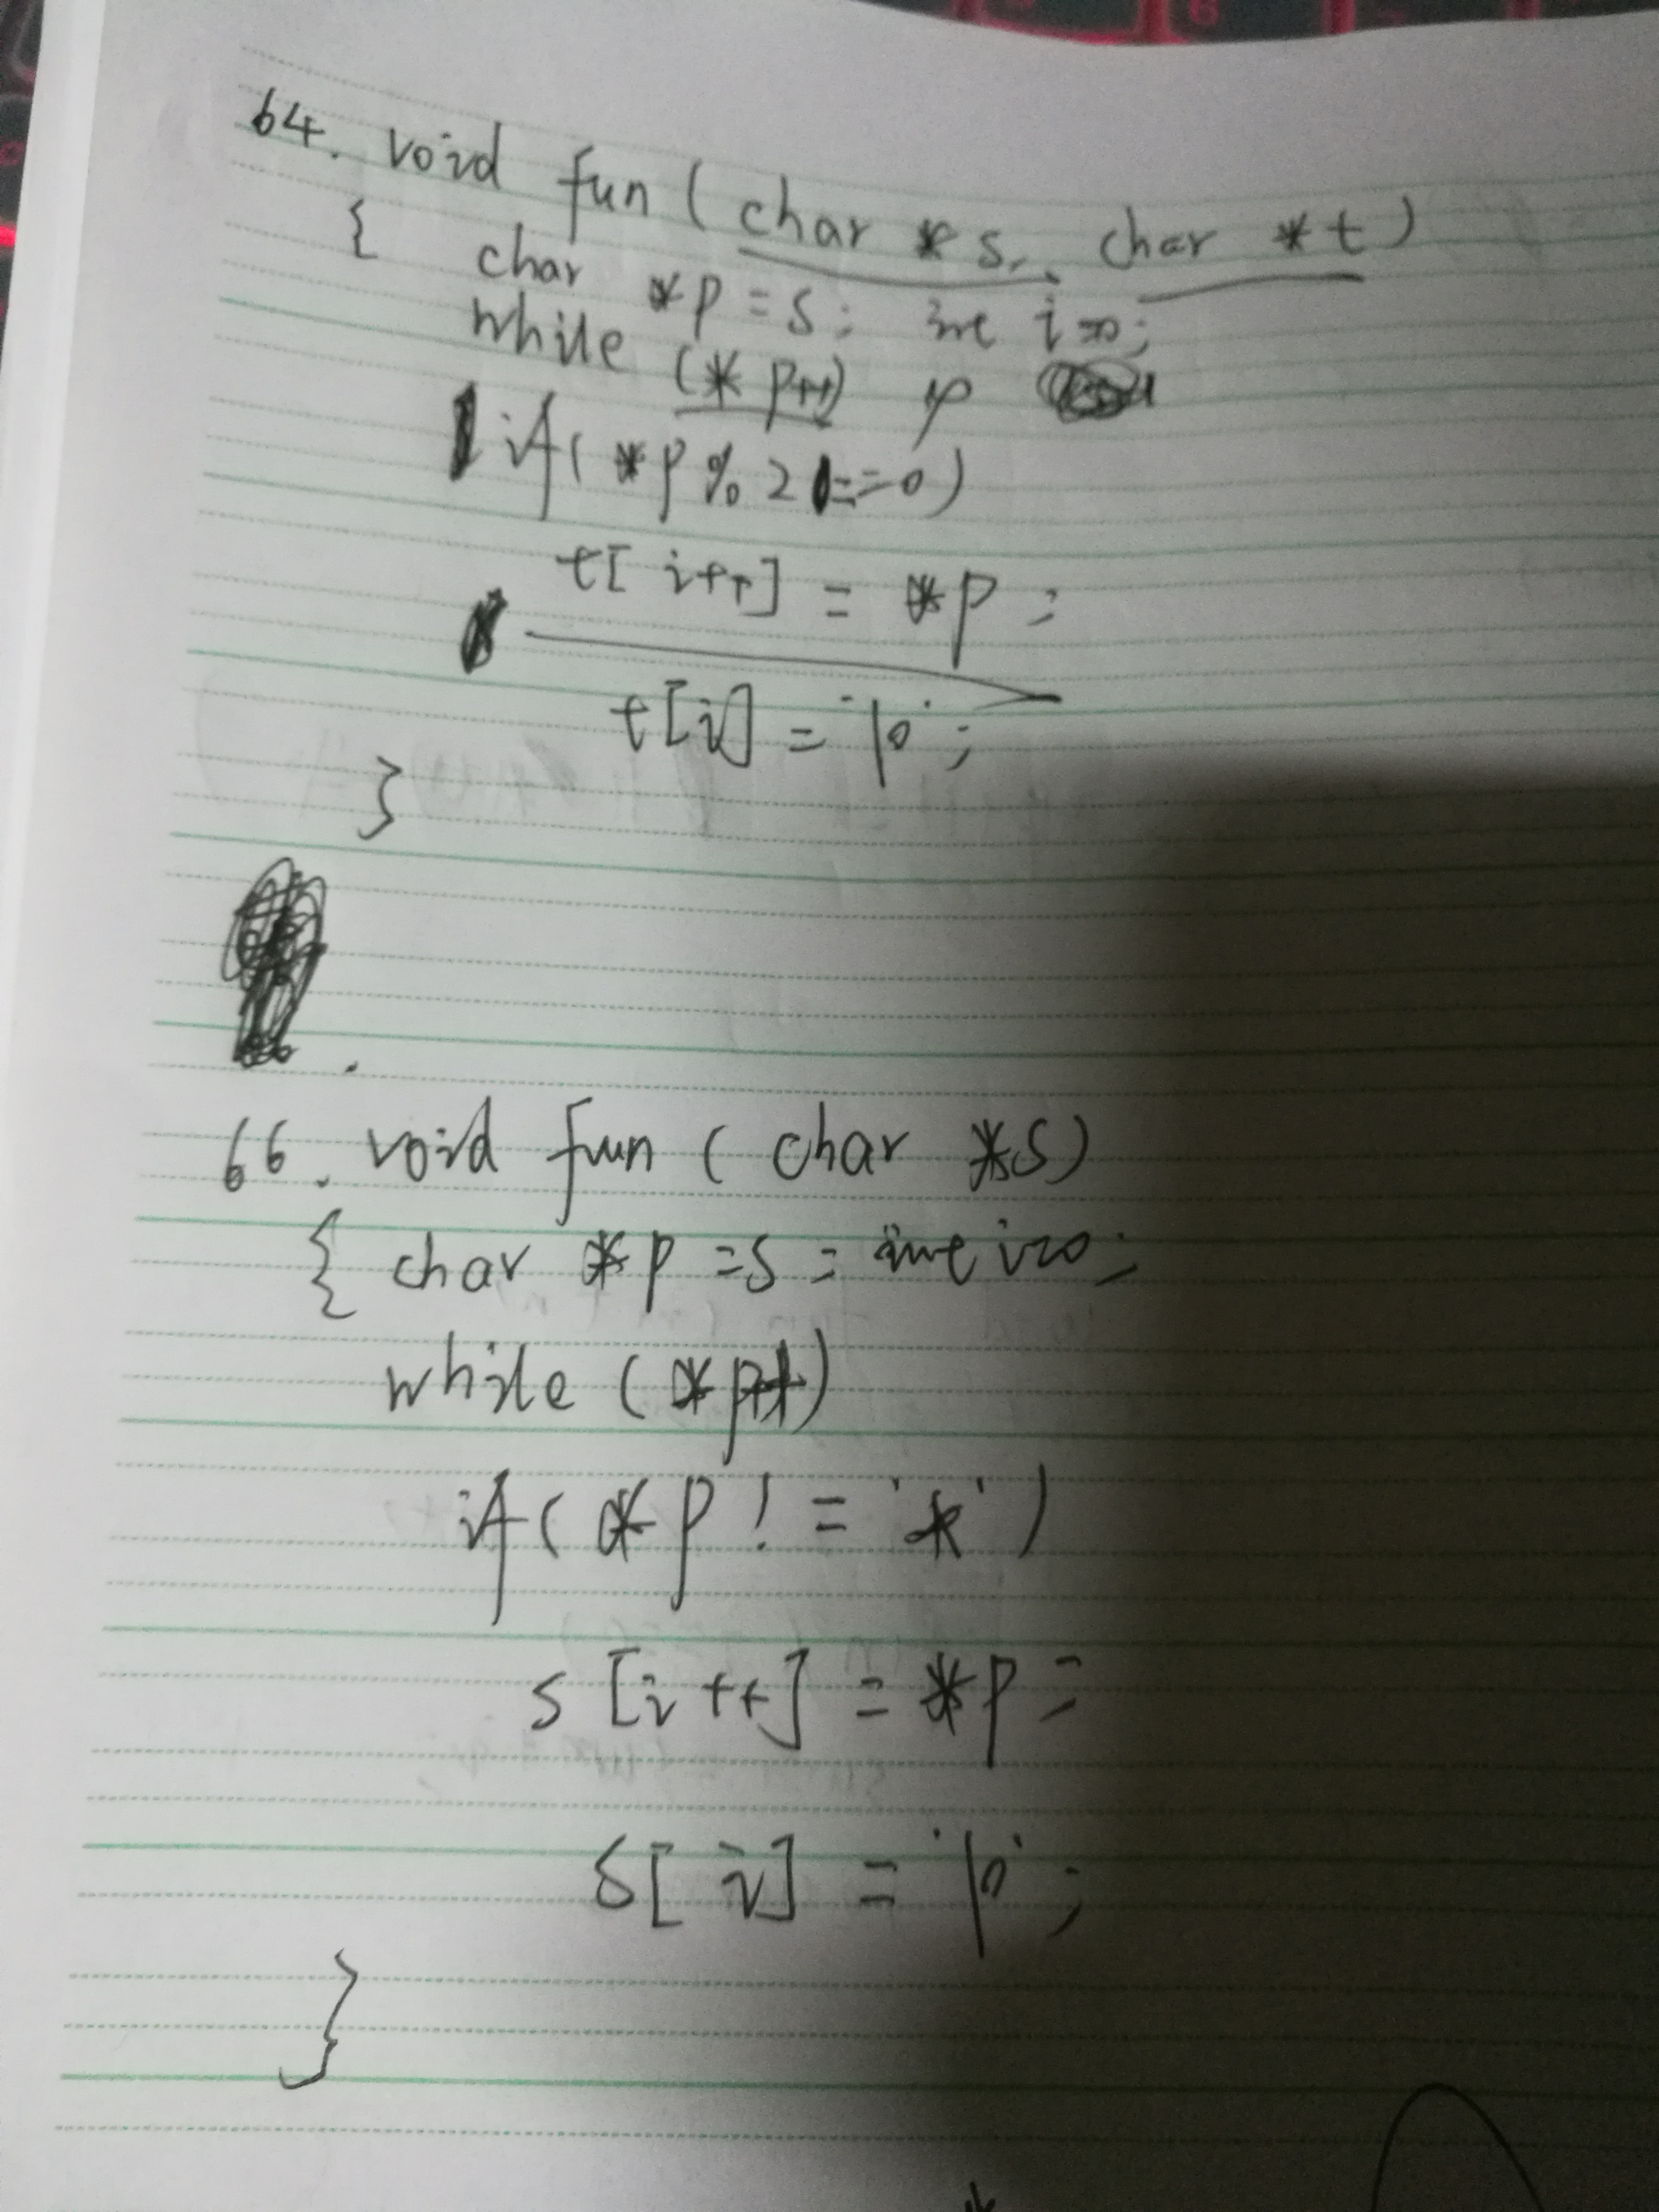 64. void fun ( char *s, char *t )
{ char *p = s; int i=0;
while (*p++)
if( *p % 2 ==0)
t[ i++] = *p ;
t[i] = '\0' ;
}
66. void fun ( char *s)
{ char *p =s ; int i=0;
while ( *p++)
if( *p ! = '*' )
s [i ++] = *p ;
s[ i] = '\0' ;
}